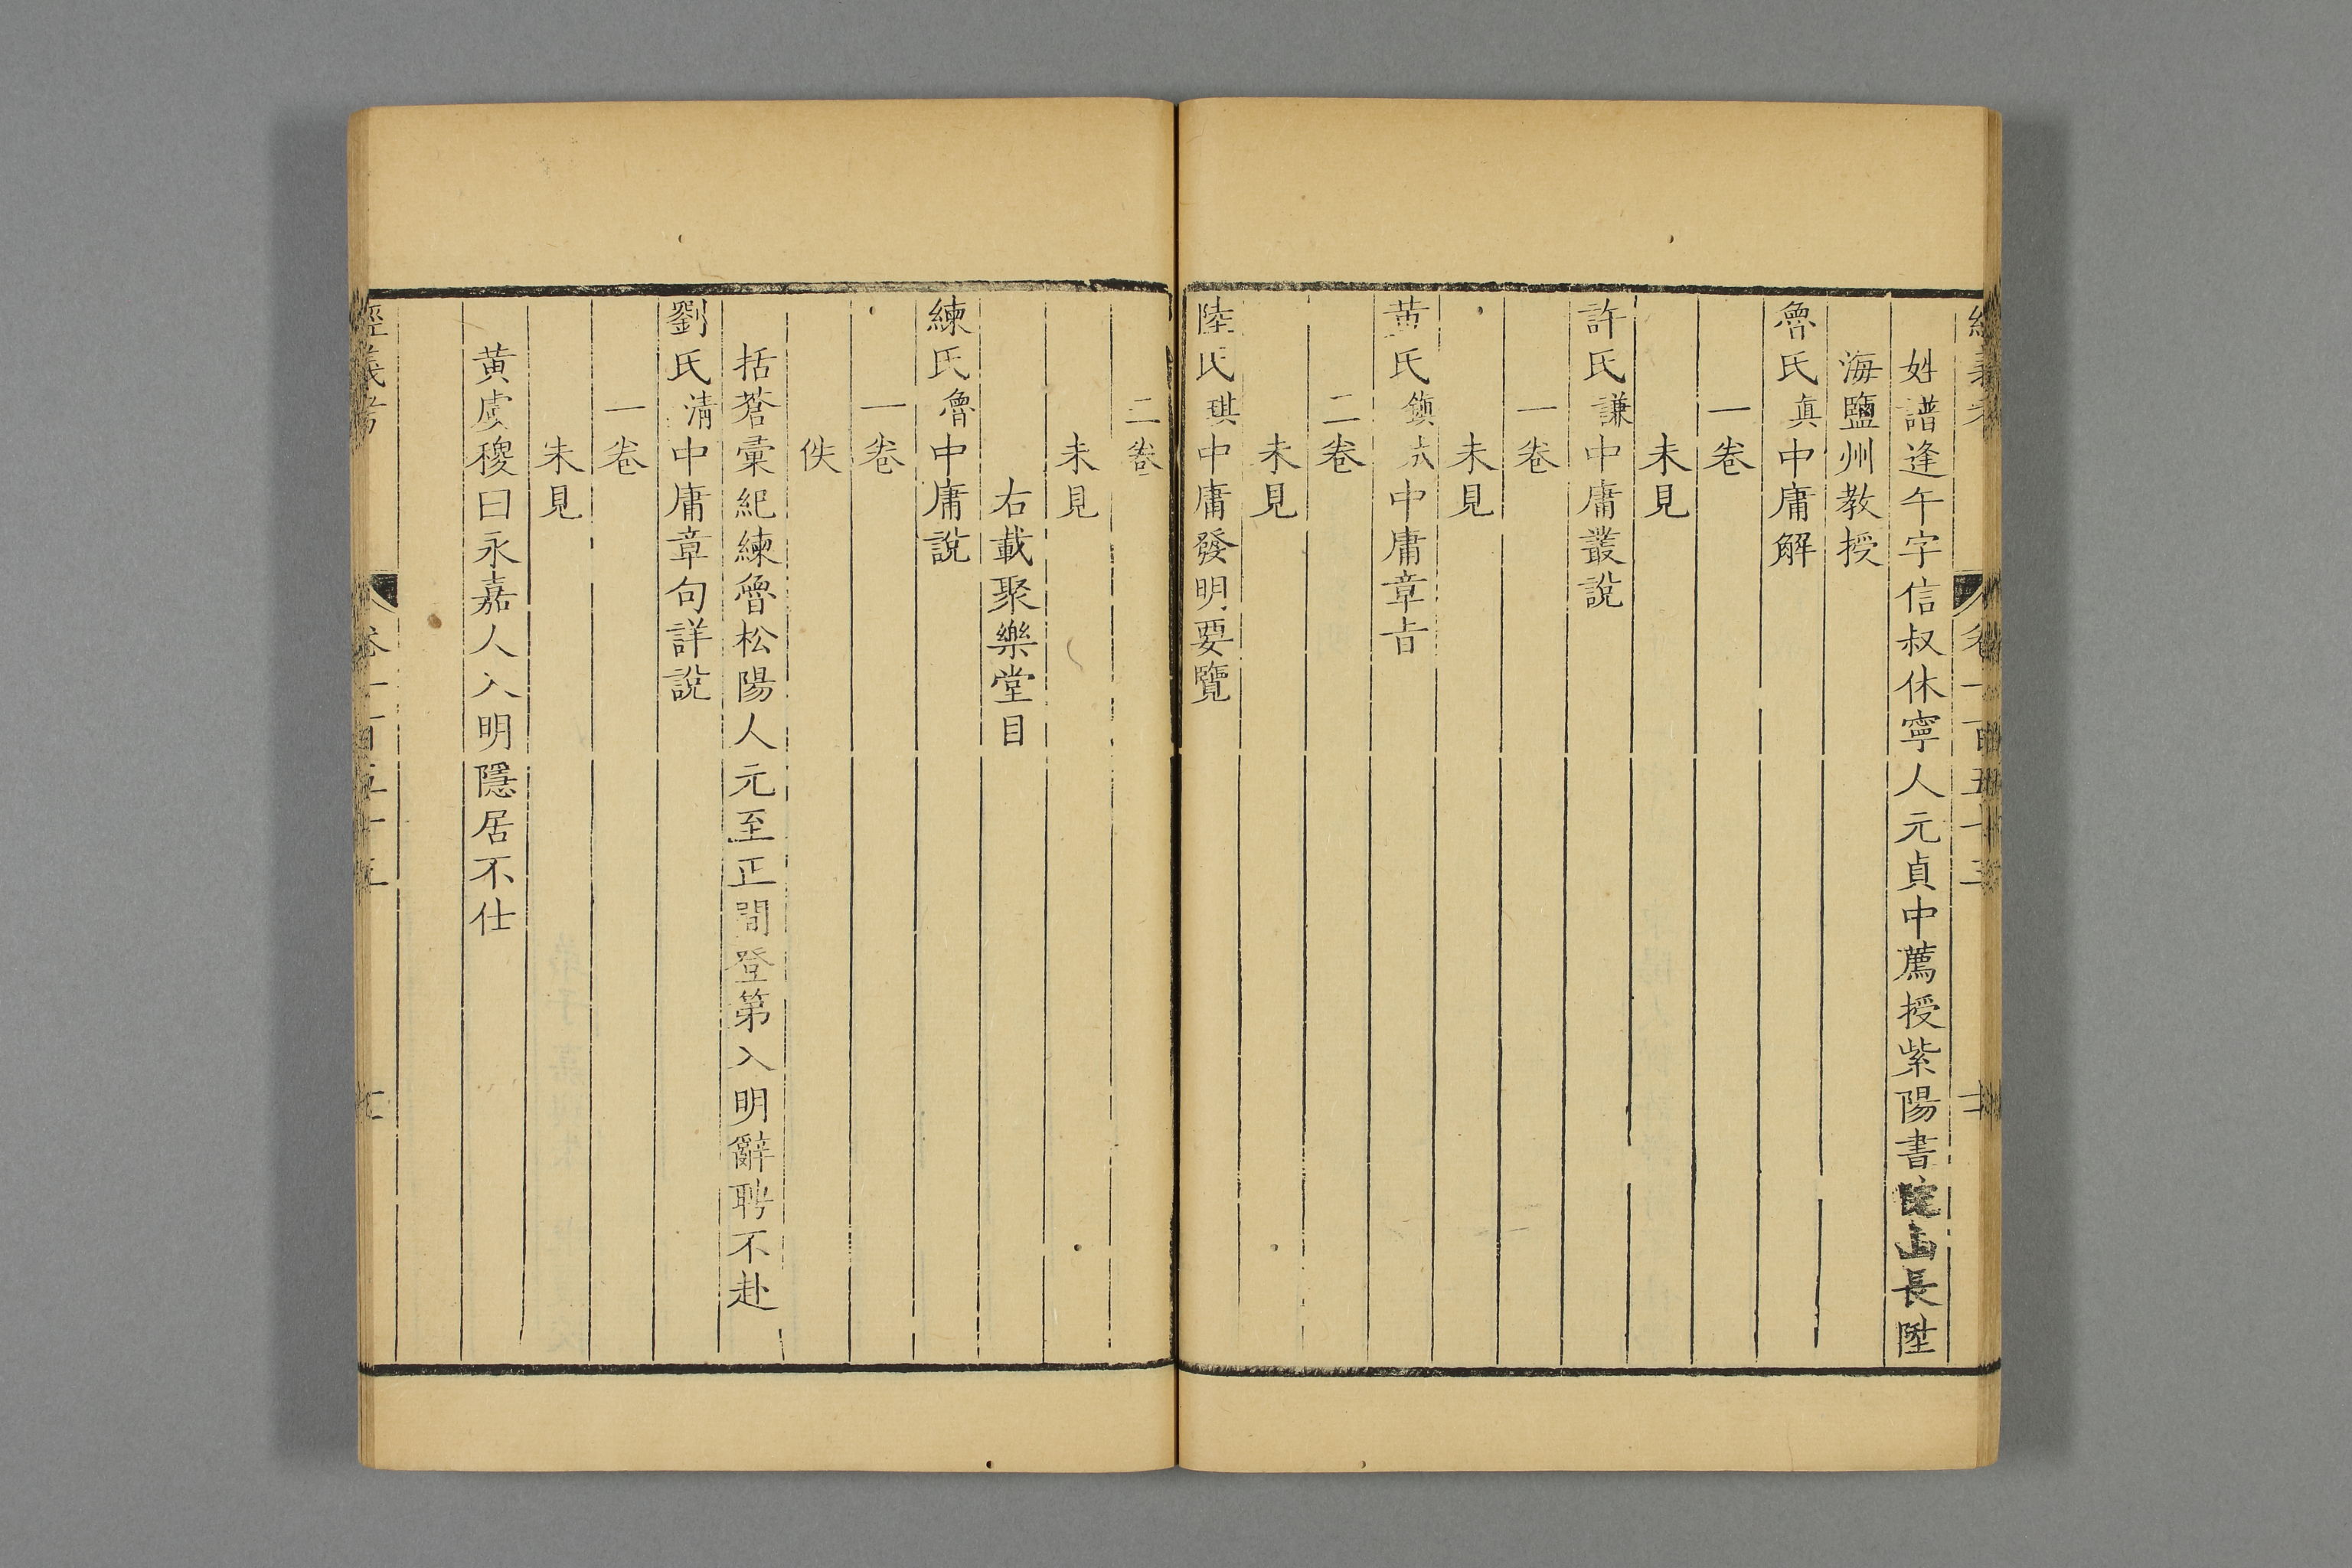 經義考 卷一百五十三 十
姓譜逢午字信叔休寧人元貞中薦授紫陽書院山長陞
海鹽州教授
魯氏真中庸解
一卷
未見
許氏謙中庸叢說
一卷
未見
黃氏鎮成中庸章旨
二卷
未見
陸氏琪中庸發明要覽
二卷
未見
右載聚樂堂目
練氏魯中庸說
一卷
佚
括蒼彙紀練魯松陽人元至正間登第入明辭聘不赴
劉氏清中庸章句詳說
一卷
未見
黃虞稷曰永嘉人入明隱居不仕
經義考 卷一百五十三